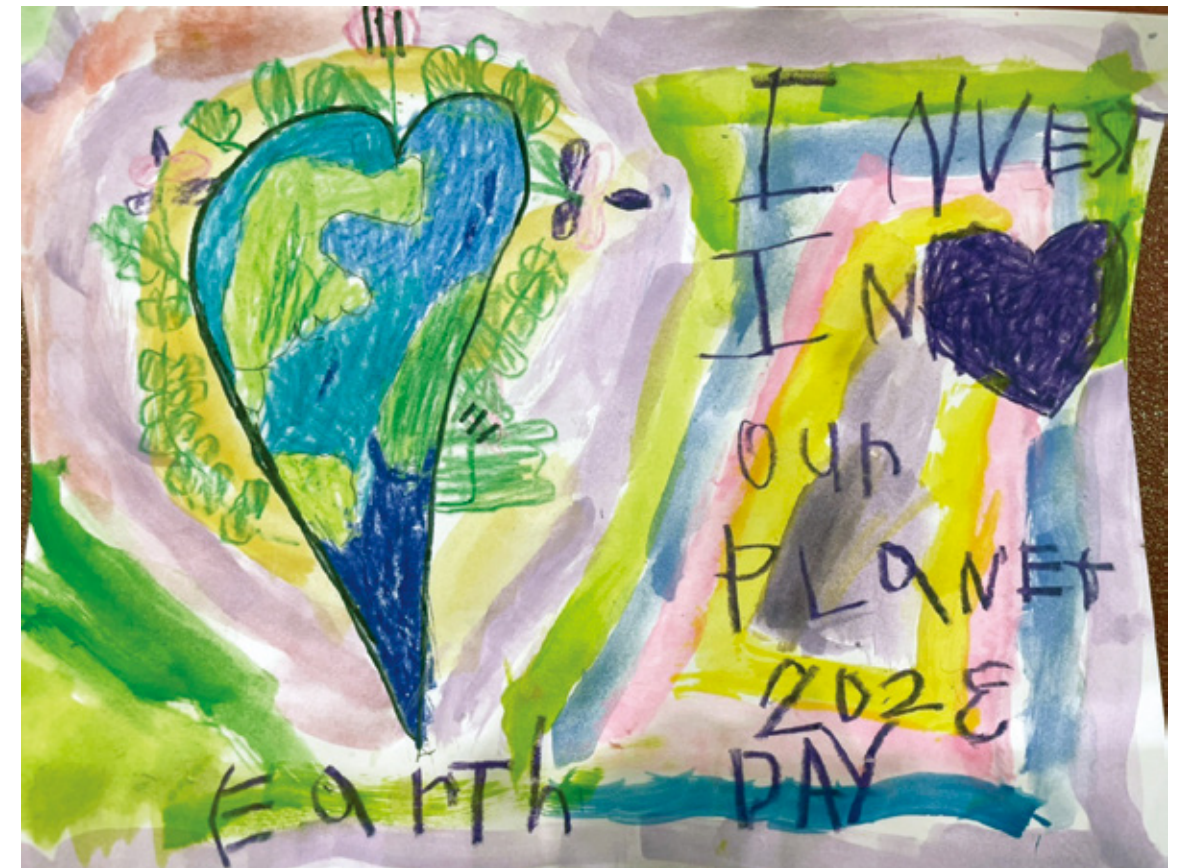 INVEST
IN
our
PLaNEt
2023
Earth DAY